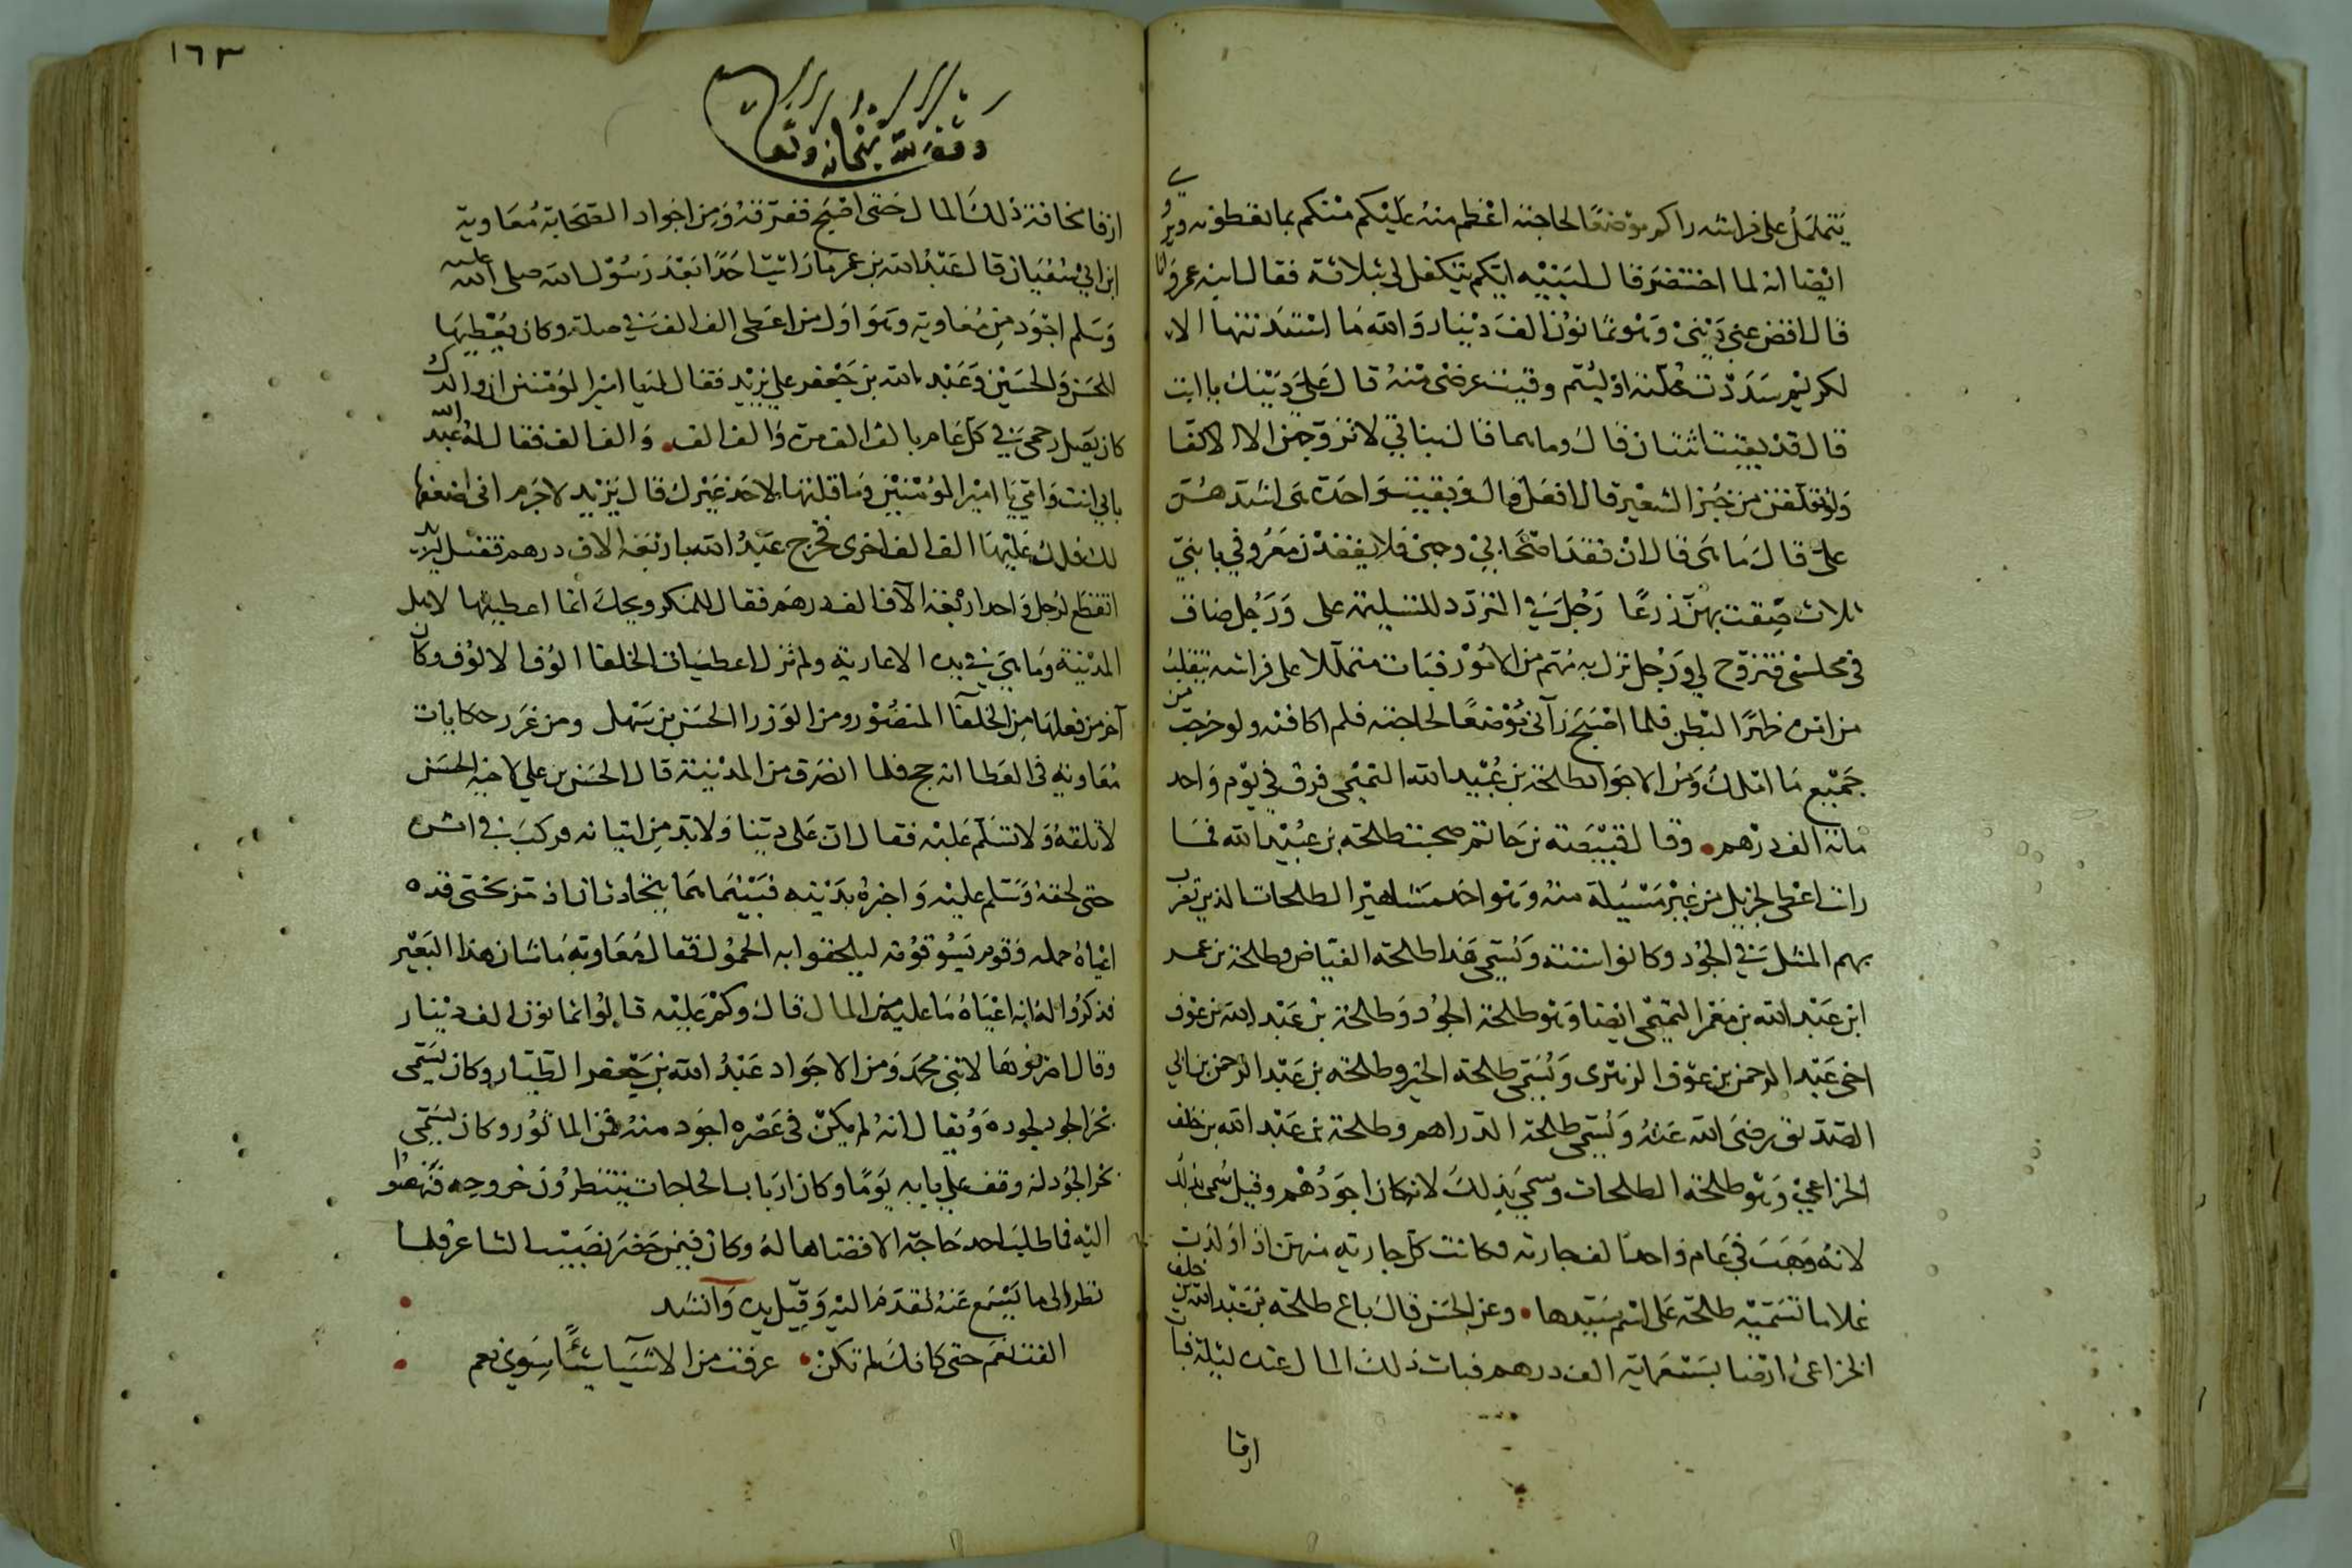 يتململ على فراشه راكم موضعًا لحاجته اعظم منه عليكم منكم بما تعطونه ويروي
ايضا انه لما احتضر قال لبنيه ايكم يتكفل لي بثلاثة فقال ابنه عمرو انا
قال اقض عني ديني وهو ثمانون الف دينار والله ما استدنتها الا
لكريم سددت خلته او لئيم وقيت عرضي منه قال علي دينك يا ابت
قال قد بقيت اثنتان قال وما هما قال بناتي لا تزوجهن الا الاكفا
ولو تعلقن من خبز الشعير قال افعل قال وبقيت واحدة هي اشدهن
علي قال ما هي قال ان فقد اصحابي وجهي فلا يفقدن معروفي يا بني
ثلاث ضقت بهن ذرعا رجل في التردد للتسليم على ورجل ضاق
في مجلسي فتزحزح لي ورجل نزل به مهم من الامور فبات متململا على فراشه يتقلب
من امره ظهرًا لبطن فلما اصبح رآني موضعًا لحاجته فلم اكافئه ولو خرجت من
جميع ما املك ومن الاجواد طلحة بن عبيد الله التميمي فرق في يوم واحد
مائة الف درهم • وقال قبيصة بن جابر صحبت طلحة بن عبيد الله فما
رايت اعطى لجزيل من غير مسئلة منه وهو احد مشاهير الطلحات الذين تضرب
بهم المثل في الجود وكانوا ستة ويسمى هذا طلحة الفياض وطلحة بن عمر
ابن عبد الله بن معمر التميمي ايضا وهو طلحة الجود وطلحة بن عبد الله بن عوف
اخي عبد الرحمن بن عوف الزهري ويسمى طلحة الخير وطلحة بن عبد الرحمن بن ابي
الصديق رضي الله عنه ويسمى طلحة الدراهم وطلحة بن عبد الله بن خلف
الخزاعي وهو طلحة الطلحات وسمي بذلك لانه كان اجودهم وقيل سمي بذلك
لانه وهب في عام واحد الف جارية فكانت كل جارية منهن اذا ولدت
غلاما تسميه طلحة على اسم سيدها • وعن الحسن قال باع طلحة بن عبد الله بن خلف
الخزاعي ارضا بسبعماية الف درهم فبات ذلك المال عنده ليلة فبات
ارقا
١٦٣
وقف لله سبحانه وتعالى
ارقا مخافة ذلك المال حتى اصبح ففرقه ومن اجواد الصحابة معاوية
ابن ابي سفيان قال عبد الله بن عمر ما رايت احدًا بعد رسول الله صلى الله عليه
وسلم اجود من معاوية وهو اول من اعطى الف الف في صلة وكان يعطيها
للحسن والحسين وعبد الله بن جعفر علي يزيد فقال له يا امير المؤمنين ان والدك
كان يصل رحمي في كل عام بالف الف مرة والف الف • والف الف فقال له عبد الله
بابي انت وامي يا امير المؤمنين وما قلتها لاحد غيرك قال يزيد لا جرم اني اضعفها
لك فلك عليها الف الف اخرى فخرج عبد الله باربعة الاف درهم فقيل ليزيد
اتقطع لرجل واحد اربعة الآف الف درهم فقال للمنكر ويحك انما اعطيتها لاهل
المدينة وما هي في يده الا عارية ولم تزل اعطيات الخلفا الوف الالوف وكان
آخر من فعلها من الخلفآ المنصور ومن الوزرا الحسن بن سهل ومن غرر حكايات
معاوية في العطا انه حج فلما انصرف من المدينة قال الحسن بن علي لاخيه الحسين
لا تلقه ولا تسلم عليه فقال ان علي دينا ولا بد من اتيانه فركب في اثره
حتى لحقه وسلم عليه واخبره بدينه فبينما هما يتحادثان اذ مر بختي قده
اعياه حمله وقوم يسوقونه ليلحقوا به الحمول فقال معاوية ما شان هذا البعير
فذكروا له انه اعياه ما عليه من المال قال وكم عليه قالوا ثمانون الف دينار
وقال اصرفوها لابي محمد ومن الاجواد عبد الله بن جعفر الطيار وكان يسمى
بحر الجود لجوده ويقال انه لم يكن في عصره اجود منه فمن الماثور وكان يسمى
بحر الجود انه وقف على بابه يومًا وكان ارباب الحاجات ينتظرون خروجه فنهضوا
اليه فما طلب احد حاجة الا قضاها له وكان فيمن حضر نصيب الشاعر فلما
نظر الى ما يسمع عنه تقدم اليه وقبل يده وانشد
الفت نعم حتى كانك لم تكن • عرفت من الاشيآ شيئًا سوى نعم